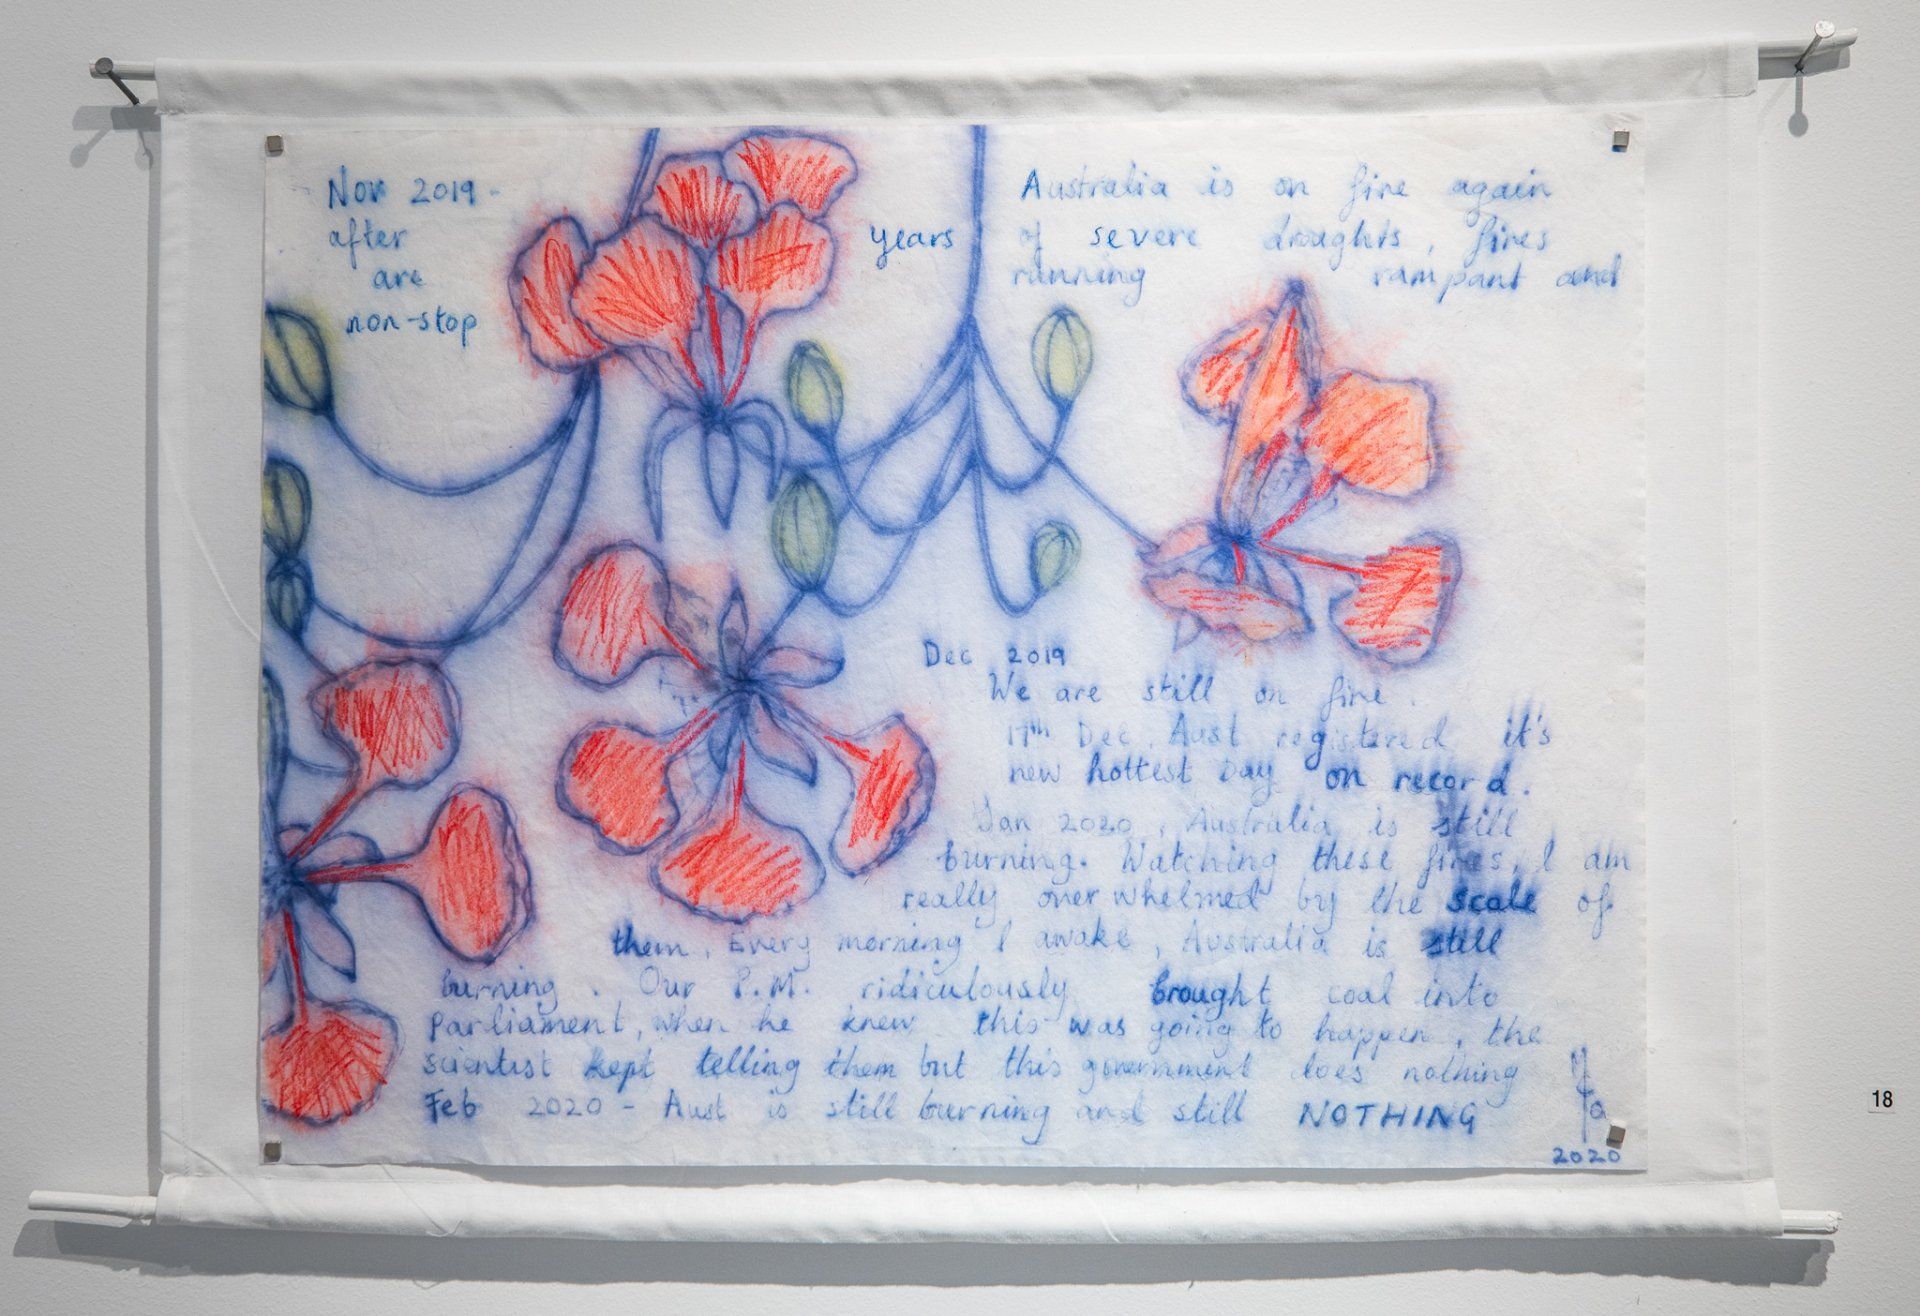 Nov 2019 - Australia is on fire again
after years of severe droughts, fires
are running rampant and
non-stop
Dec 2019
We are still on fire.
17th Dec, Aust registered it's
new hottest Day on record.
Jan 2020, Australia is still
burning. Watching these fires, I am
really overwhelmed by the scale of
them. Every morning I awake, Australia is still
burning. Our P.M. ridiculously brought coal into
Parliament, when he knew this was going to happen, the
scientist kept telling them but this government does nothing
Feb 2020 - Aust is still burning and still NOTHING
2020
18